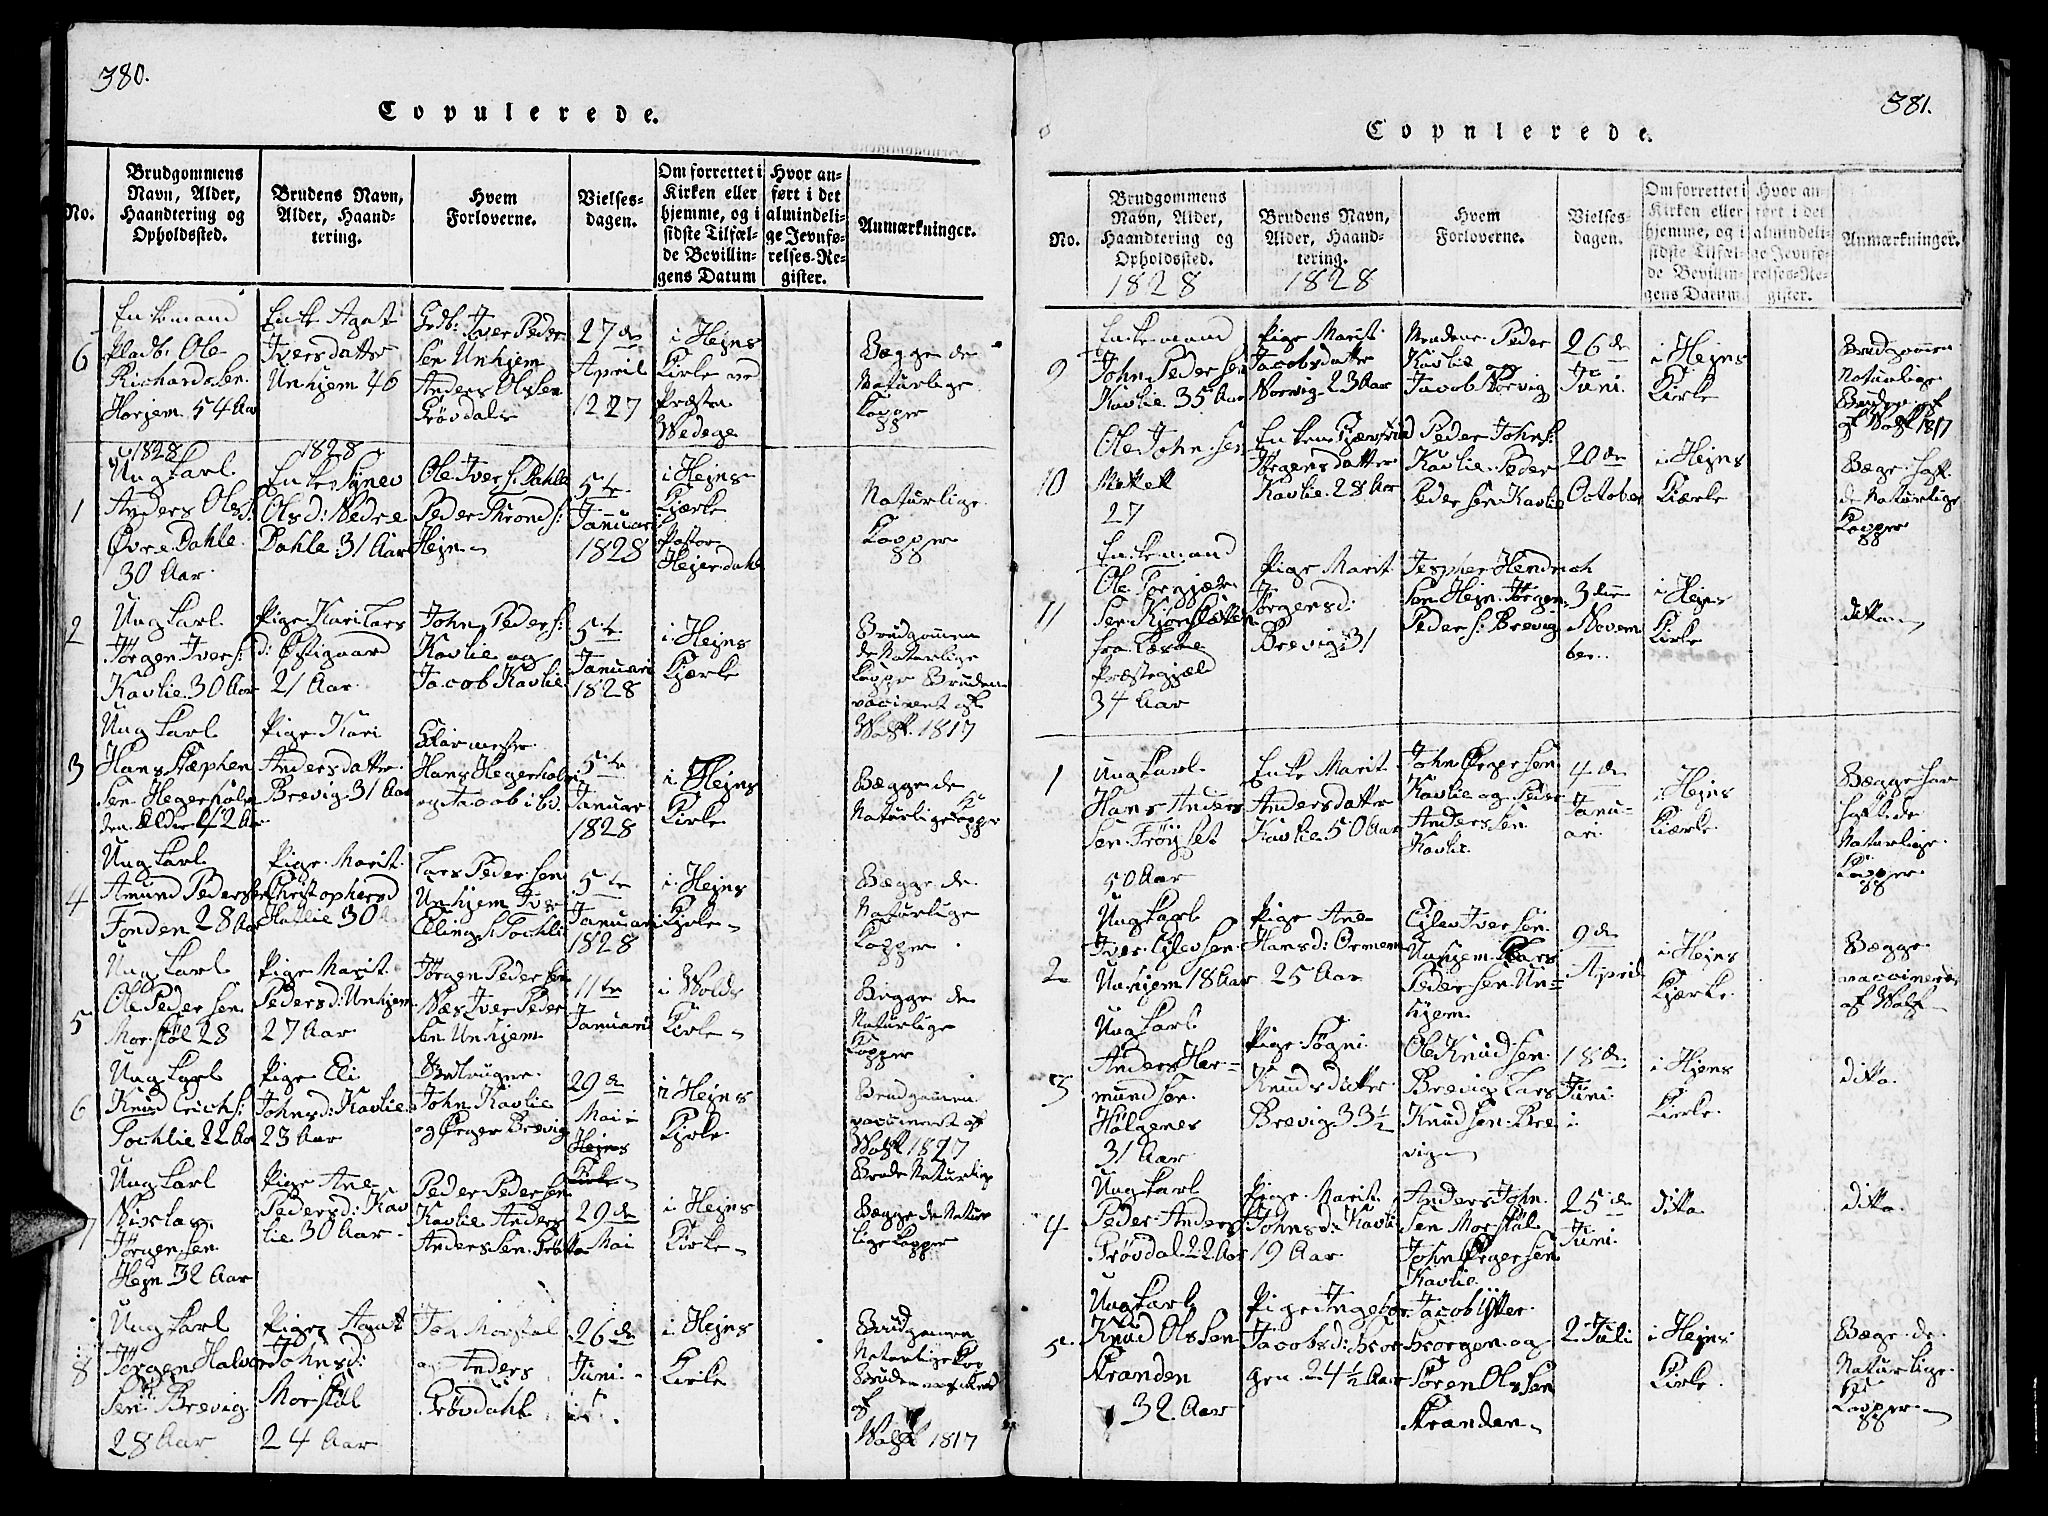 380.
Copulerede.
No.
Brudgommens
Navn, Alder,
Haandtering og
Opholdssted.
Brudens Navn,
Alder, Haand-
tering.
Hvem
Forloverne.
Vielses-
dagen.
Om forrettet i
Kirken eller
hjemme, og i
sidste Tilfæl-
de Bevillin-
gens Datum
Hvor an-
ført i det
almindeli-
ge Jevnfø-
relses-Re-
gister.
Anmærkninger.
6
Enkemand
Pladb: Ole
Richardsen
Horjem 54 Aar
Enke Agat
Iversdatter
Unhjem 46
Grdb: Iver Peder
sen Unhjem
Anders Olssen
Grøvdale
27de
April
1827
i Hejns
Kirke ved
Præsten
Wedege
Begge de
Naturlige
Kopper
1828
1828
1
Ungkarl
Anders Olss:
Øvre Dahle
30 Aar
Enke Synev
Olsd: Nedre
Dahle 31 Aar
Ole Ivers: Dahle
Peder Thronds:
Hejn
5te
Januari
1828
i Hejns
Kjærke
Pastor
Hejerdahl
Naturlige
Kopper
2
Ungkarl
Jørgen Ivers:
Kavlie 30 Aar
Pige Kari Lars
d: Østigaard
21 Aar
John Peders:
Kavlie og
Jacob Kavlie
5te
Januari
1828
i Hejns
Kjærke
Brudgommen
de Naturlige
Kopper Bruden
vaccineret af
Wolf. 1817
3
Ungkarl
Hans Stephen
sen Hegerholm
den Ældre 42 Aar
Pige Kari
Andersdatter
Brevig 31 Aar
Hans Hegerholm
og Jacob ibd.
5te
Januar
1828
i Hejns
Kirke
Begge de
Naturlige Kopper
4
Ungkarl
Amund Pedersen
Fonden 28 Aar
Pige Marit
Christophersd
Havlie 30 A
Lars Pedersen
Unhjem Iver
Ellings: Sochli
5te
Januari
1828
i Hejns
Kjrke
Begge de
Naturlige
Kopper
5
Ungkarl
Ole Pedersen
Morstøl 28
Pige Marit
Pedersd: Unhjem
27 Aar
Jørgen Pedersen
Næs Iver Peder
sen Unhjem
11te
Januari
i Wolds
Kirke
Begge de
Naturlige
Kopper
6
Ungkarl
Knud Erichs:
Sochlie 22 Aar
Pige Eli
Johnsd: Kavlie
23 Aar
John Kavlie
og Ørger Brevig
29de
Mai i
Hejns
Kirke
i Hejns
Kjrke
Brudgommen
vaccineret af
Wolf 1817
Brude Naturlige
7
Ungkarl
Nicolay
Jørgensen
Hejn 32 Aar
Pige Ane
Pedersd: Kav
lie 30 Aar
Peder Pedersen
Kavlie Anders
Anderssen
29de
Mai
i Hejns
Kirke
Begge de Natur
lige Kopper
8
Ungkarl
Jørgen Halvor
sen Brevig
28 Aar
Pige Agnat
Johnsd:
Morstøl
24 Aar
Joh Morstøl
og Anders
Grövdahl
26de
Juni
i Hejns
Kirke
Brudgommen
Naturlige Kop
Bruden vacineret
af
Wolf 1817
381.
Copulerede.
No.
Brudgommens
Navn, Alder,
Haandtering og
Opholdssted.
1828
Brudens Navn,
Alder, Haand-
tering.
1828
Hvem
Forloverne.
Vielses-
dagen.
Om forrettet i
Kirken eller
hjemme, og i
sidste Tilfæl-
de Bevillin-
gens Datum
Hvor an-
ført i det
almindeli-
ge Jevnfø-
relses-Re-
gister.
Anmærkninger.
9
Enkemand
John Pedersen
Kavlie 35 Aar
Pige Marit
Jacobsdatter
Norvig 23 Aar
Mændene Peder
Kavlie og
Jacob Norvig
26de
Juni
i Hejns
Kirke
Brudgommen
Naturlige
Bruden af
Wolf 1817
10
Ole Johnsen
27
Enken
Jørgensdatter
Kavlie 28 Aar
Peder Johns:
Kavlie Peder
Pedersen Kavlie
20de
October
i Hejns
Kiærke
Bege haft
de Naturlige
Kopper
11
Enkemand
Ole
fra
Præstegjæld
34 Aar
Pige Marit
Jørgensd:
Brevig 31
Jespher Hendrich
sen Hejn Jørgen
Peders: Brevig
3die
Novem
ber
i Hejns
Kirke
ditto
1
Ungkarl
Hans Anders
sen Frøyset
50 Aar
Enke Marit
Andersdatter
Kavlie 50 Aar
John Ørgersen
Kavlie og Peder
Anderssen
Kavlie
4de
Janu-
ari
i Hejns
Kiærke
Begge har
haft de
Naturlige
Kopper
2
Ungkarl
Iver Eilevsen
Unhjem 18 Aar
Pige Ane
Hansd: Ormem
25 Aar
Eilev Iversen
Unhjem Lars
Pedersen Un=
hjem
9de
April
i Hejns
Kjærke
Begge
vaccinerede
af Wolf
3
Ungkarl
Anders Her=
mundsen
Hølgenes
31 Aar
Pige Søgni
Knudsdatter
Brevig 33½
Ole Knudsen
Brevig Lars
Knudsen Bre
vig
18de
Juni
i Hjens
Kierke
ditto
4
Ungkarl
Peder Anders
Grövdal 22 Aar
Pige Marit
Johnsd: Kavli
19 Aar
Anders John
sen Morstøl
John Ørgersen
Kavlie
25de
Juni
ditto
ditto
5
Ungkarl
Knud Olssen
Stranden
32 Aar
Pige Ingebor
Jacobsd: Hor
gen 24½ Aar
Jacob Ytter
Horgen og
Søren Olssen
Stranden
2 Juli
i Hejns
Kirke
Bege de
Naturlige
Kopper